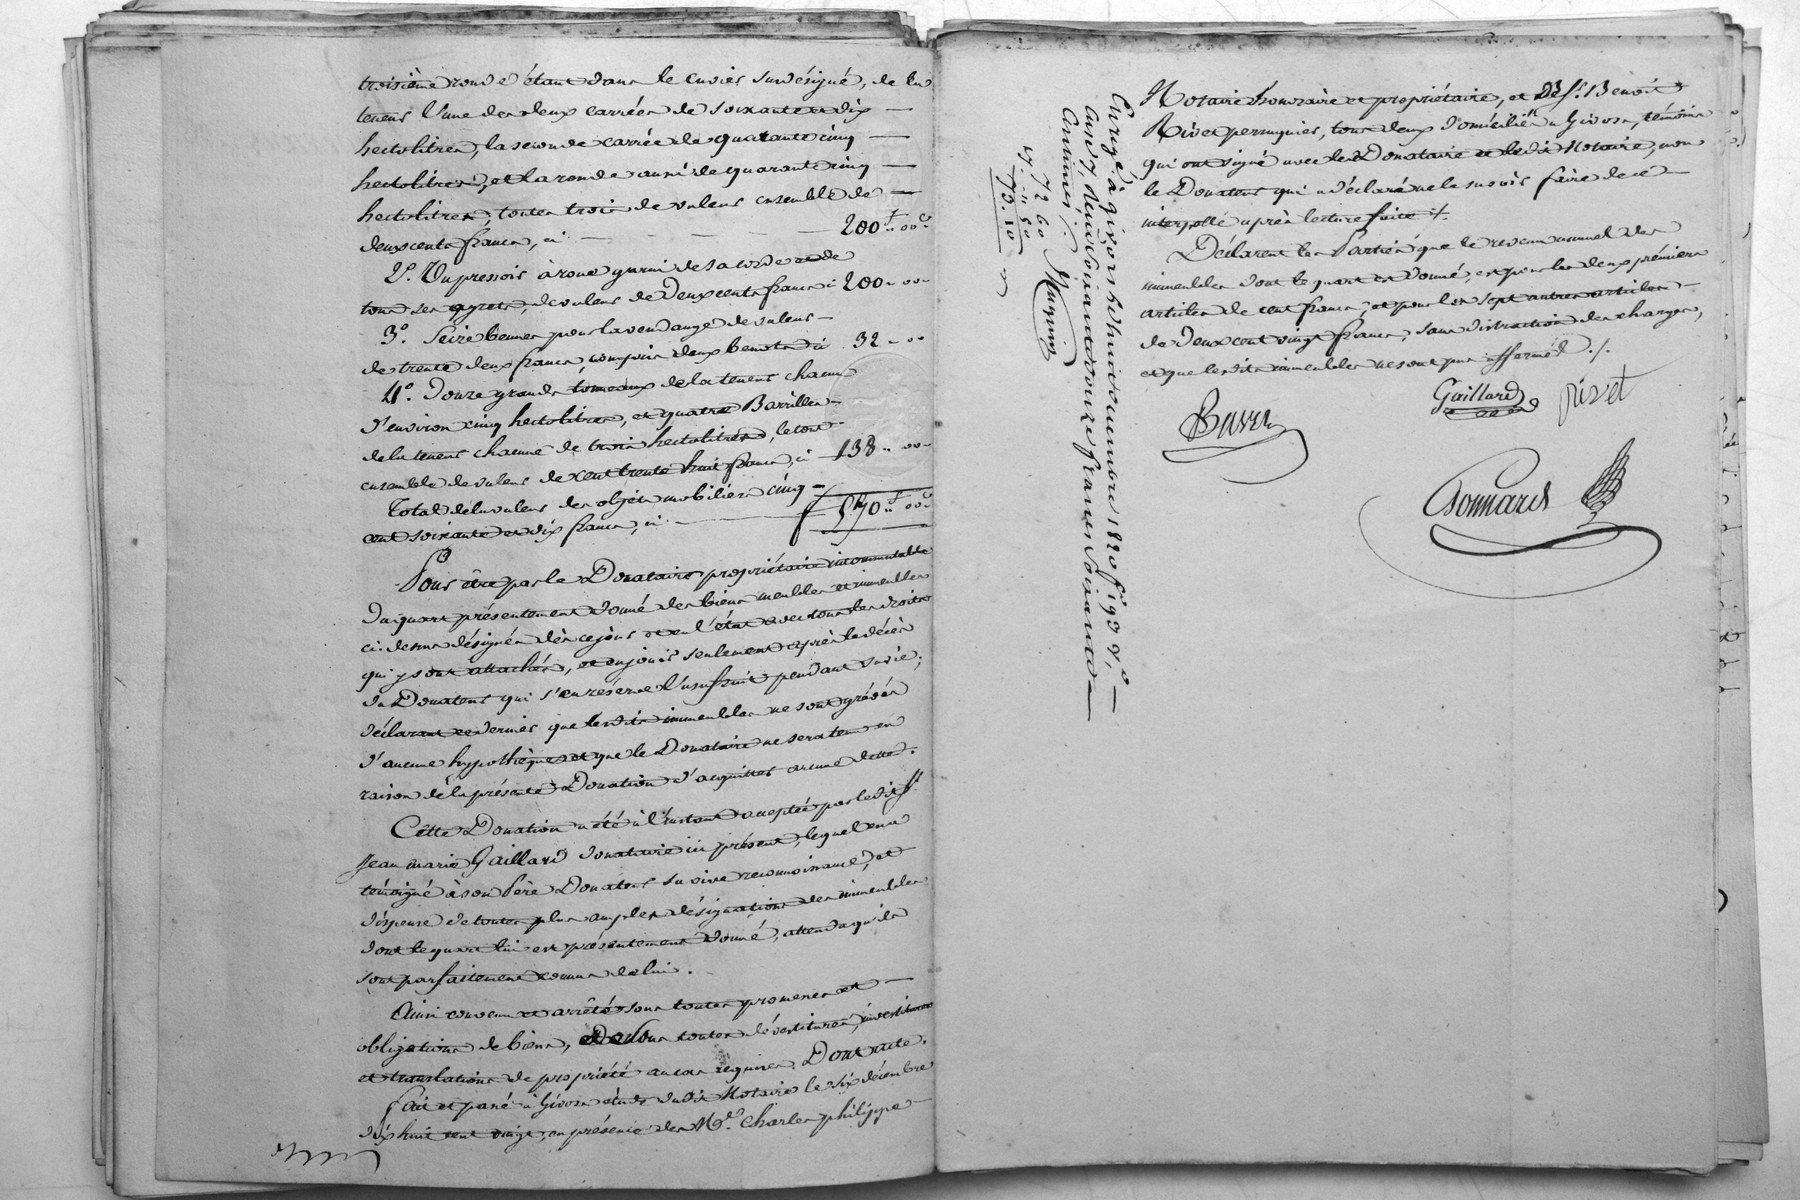 troisième ronde étant dans le cuvier susdésigné, de la
teneur l'une des deux carrées de soixante et dix —
hectolitres, la seconde carrée de quarante cinq —
hectolitres, et la ronde aussi de quarante cinq —
hectolitres, toutes trois de valeur ensemble de —
deux cents francs, ci — 200 f.. 00 c
2°. Un pressoir à roue garni de sa corde et de
tous ses agrets, de valeur de Deux cents francs ci 200 .. 00 ..
3°. Seize bennes pour la vendange de valeur —
de trente deux francs, compris deux benots ci 32 .. 00
4°. Douze grands tonneaux de la teneur chacun
d'environ cinq hectolitres, et quatre Barrilles —
de la teneur chacune de trois hectolitres, le tout —
ensemble de valeur de cent trente huit francs, ci — 138 .. 00 ..
Total de la valeur des objets mobiliers cinq —
cent soixante et dix francs, ci — 570 f.. 00 c
Pour être par le Donataire propriétaire incommutable
du quart présentement donné des biens meubles et immeubles
ci-dessus désignés dès ce jour et en l'état avec tous les droits
qui y sont attachés, et en jouir seulement après le décès
du Donateur qui s'en réserve l'usufruit pendant sa vie;
déclarant ce dernier que lesdits immeubles ne sont grévés
d'aucune hypothèque et que le Donataire ne sera tenu en
raison de la présente Donation d'acquitter aucune dette.
Cette Donation a été à l'instant acceptée par ledit Sr.
Jean marie Gaillard donataire ici présent, lequel en a
témoigné à son Père Donateur sa vive reconnoissance, et
dispense de toutes plus amples désignations des immeubles
dont le quart lui est présentement donné, attendu qu'ils
sont parfaitement connus de lui.
Ainsi convenu et arrêté sous toutes promesses et —
obligations de biens, et sous toutes dévestitures, investitures
et translations de propriété en cas requises. Dont acte.
Fait et passé à Givors étude dudit Notaire le six décembre
dix huit cent vingt, en présence de Mr. Charles philippe —
Notaire honoraire et propriétaire, et de Sr. Benoît
Rivet perruquier, tous deux domiciliés à Givors, témoins
qui ont signé avec le Donataire et ledit Notaire, non
le Donateur qui a déclaré ne le savoir faire de ce —
interpellé après lecture faite ./.
Déclarent les Parties que le revenu annuel des
immeubles dont le quart est donné, est pour les deux premiers
articles de cent francs, et pour les sept autres articles —
de Deux cent vingt francs, sans distraction des charges,
et que lesdits immeubles ne sont pas affermés ./.
Gaillard Rivet
Bonnard
Enrégé. à givors le huit décembre 1820 f° 93 v.° —
Case 7, reçu soixante douze francs soixante —
Centimes
72 60